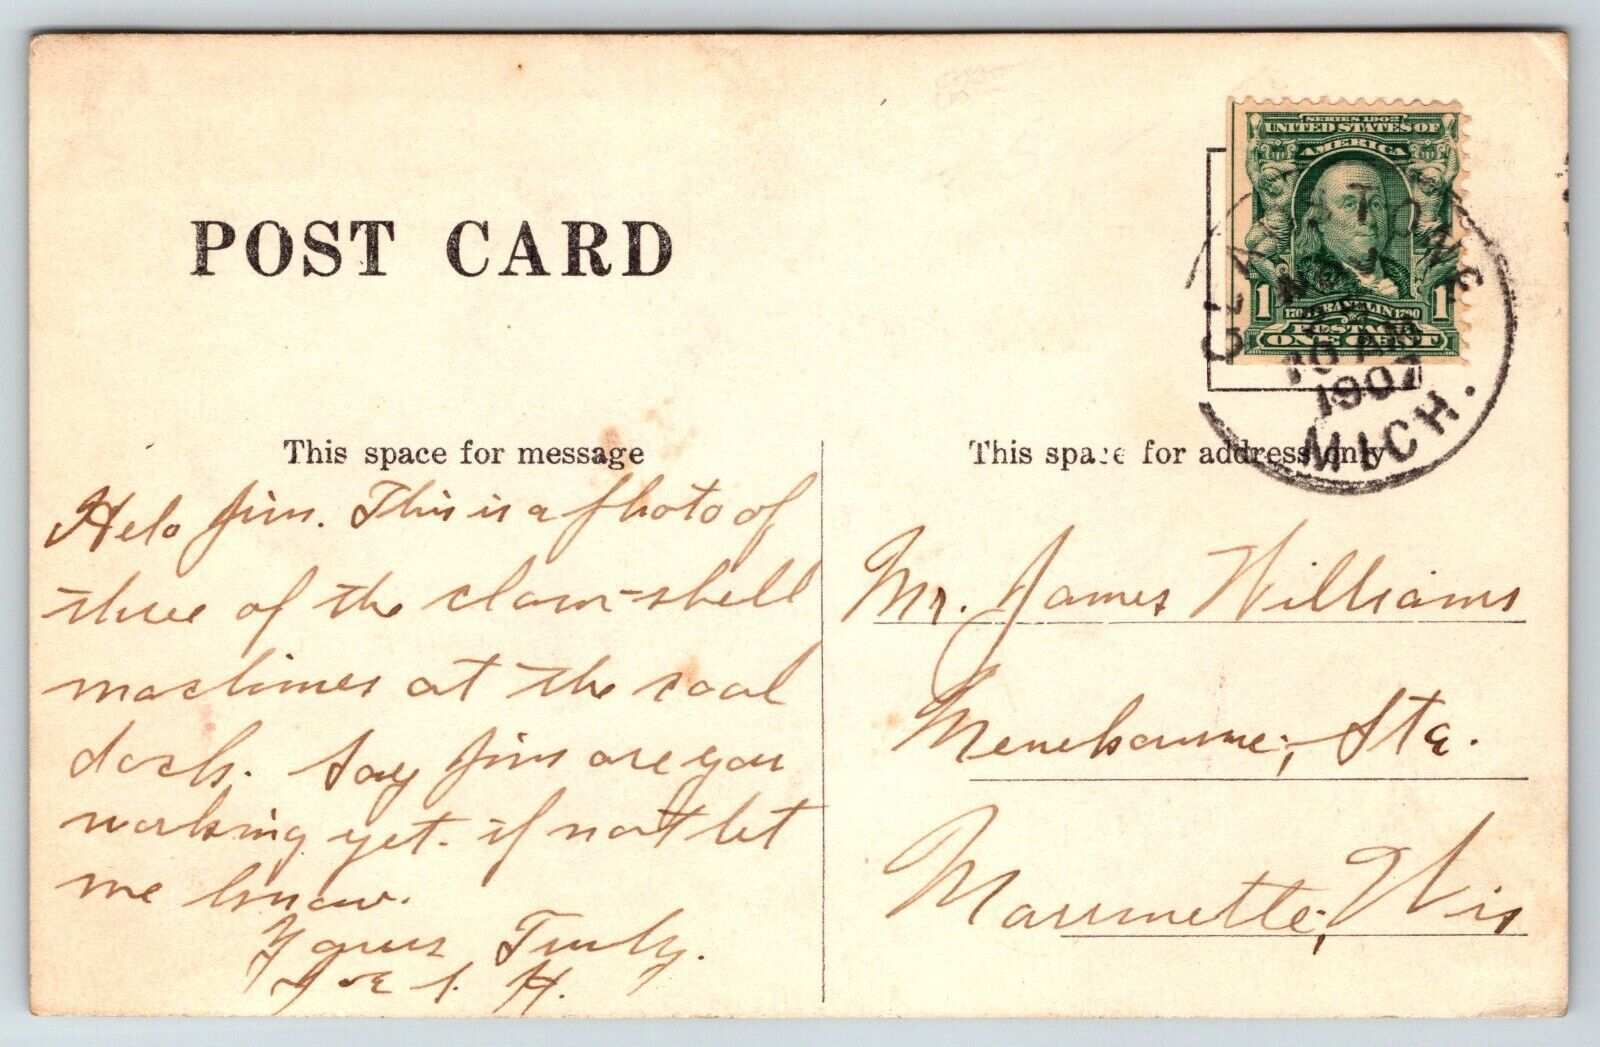 POST CARD
SERIES 1902
UNITED STATES OF
AMERICA
1 FRANKLIN 1
POSTAGE
ONE CENT
GLADSTONE
NOV
10 AM
1907
MICH.
This space for message
Helo Jim. This is a photo of
three of the clam-shell
machines at the coal
dock. Say Jim are you
working yet. if not let
me know.
Yours Truly.
Joe S. H.
This space for address only
Mr. James Williams
Menekaunne, Sta.
Marinette, Wis